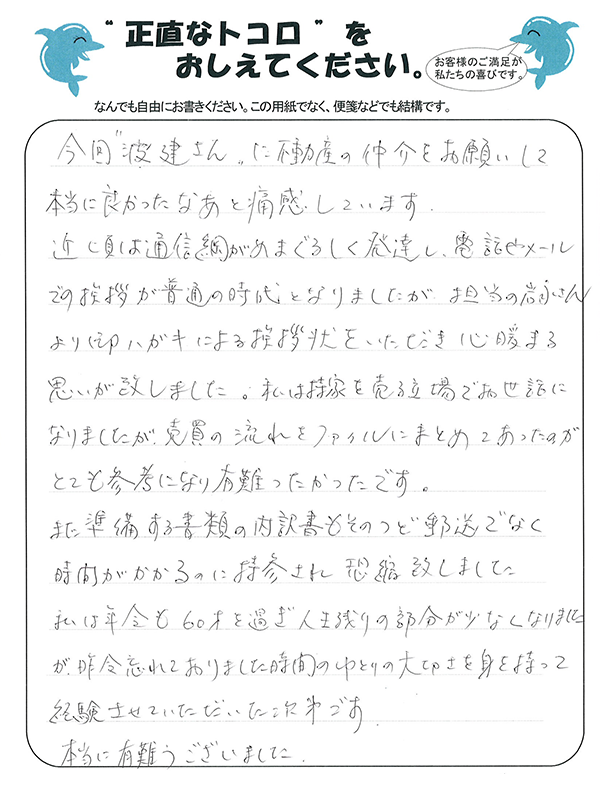 “正直なトコロ”を
おしえてください。
お客様のご満足が
私たちの喜びです。
なんでも自由にお書きください。この用紙でなく、便箋などでも結構です。
今回“波建さん„に不動産の仲介をお願いして
本当に良かったなあと痛感しています.
近頃は通信網がめまぐるしく発達し、電話やメール
での挨拶が普通の時代となりましたが、担当の岩永さん
より御ハガキによる挨拶状をいただき心暖まる
思いが致しました。私は持家を売る立場でお世話に
なりましたが、売買の流れをファイルにまとめてあったのが
とても参考になり有難ったかったです。
また準備する書類の内訳書もそのつど郵送でなく
時間がかかるのに持参され恐縮致しました
私は年令も60才を過ぎ人生残りの部分が少なくなりました
が、昨今忘れておりました時間のゆとりの大切さを身を持って
経験させていただいた次第です
本当に有難うございました.